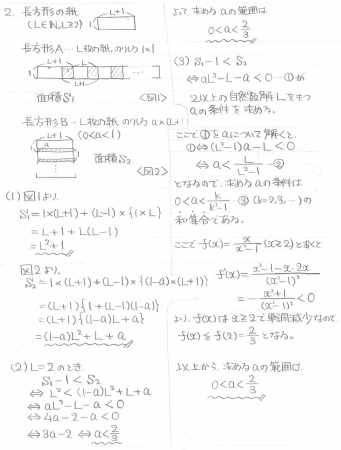 2. 長方形の紙
(L∈ℕ, L≧2)
L+1
1
長方形A … L枚の紙, のりしろ 1×1
L+1
L+1
1
L+1
面積S₁
<図1>
長方形B … L枚の紙, のりしろ a×(L+1)
(0<a<1)
L+1
1
a
面積S₂
<図2>
(1) 図1より,
S₁ = 1×(L+1) + (L-1)×{1×L}
= L+1 + L(L-1)
= L²+1
図2より,
S₂ = 1×(L+1) + (L-1)×{(1-a)×(L+1)}
= (L+1){1+(L-1)(1-a)}
= (L+1){(1-a)L+a}
= (1-a)L² + L + a
(2) L=2のとき,
S₁-1 < S₂
⇔ L² < (1-a)L²+L+a
⇔ aL²-L-a < 0
⇔ 4a-2-a < 0
⇔ 3a-2 ⇔ a < 2/3
よって, 求めるaの範囲は
0<a<2/3
(3) S₁-1 < S₂
⇔ aL²-L-a<0 …①が
2以上の自然数解Lをもつ
aの条件を求める.
ここで①をaについて解くと,
①⇔(L²-1)a-L<0
⇔ a < L/(L²-1) …②
となるので, 求めるaの条件は
0<a<k/(k²-1) …③ (k=2,3,…)の
和集合である.
ここで f(x)=x/(x²-1) (x≧2)とおくと
f'(x)=(x²-1-x・2x)/(x²-1)²
= -(x²+1)/(x²-1)² < 0
より, f(x)はx≧2で単調減少なので
f(x)≦f(2)=2/3となる.
以上から, 求めるaの範囲は
0<a<2/3